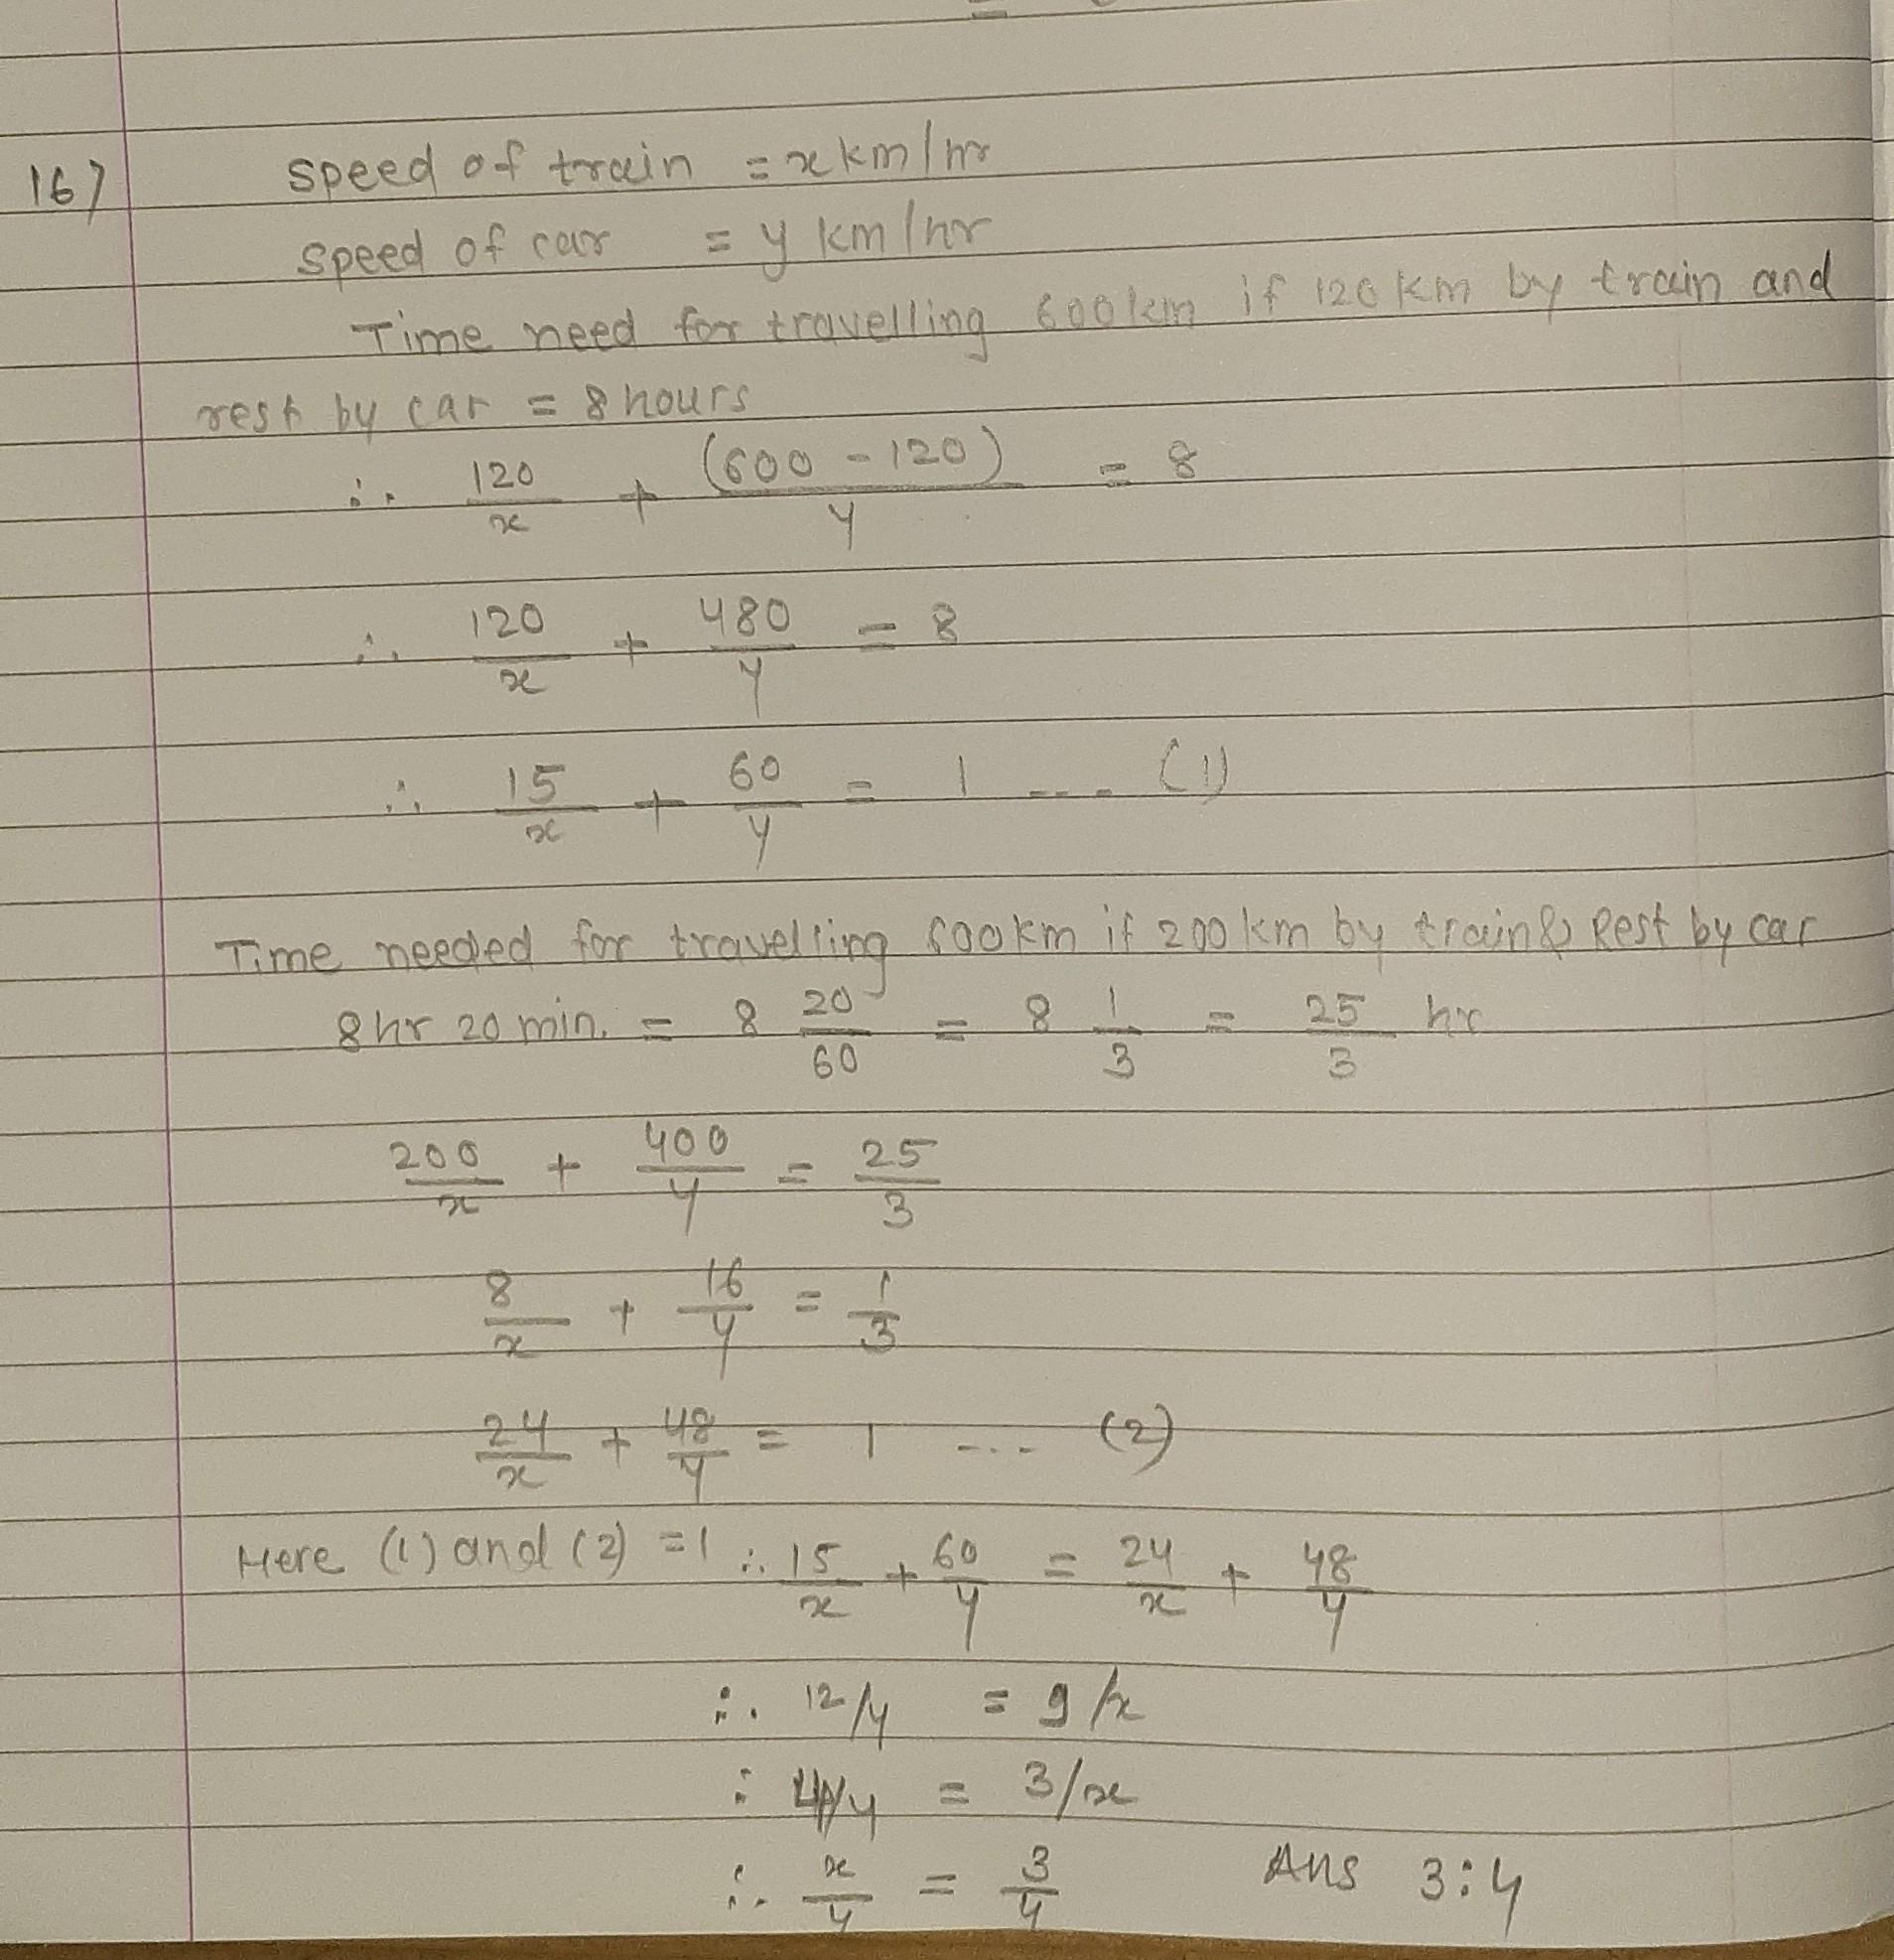 16) speed of train = x km/hr
speed of car = y km/hr
Time need for travelling 600km if 120 km by train and
rest by car = 8 hours
∴ 120/x + (600 - 120)/y = 8
∴ 120/x + 480/y = 8
∴ 15/x + 60/y = 1 --- (1)
Time needed for travelling 600km if 200 km by train & Rest by car
8 hr 20 min. = 8 20/60 = 8 1/3 = 25/3 hr
200/x + 400/y = 25/3
8/x + 16/y = 1/3
24/x + 48/y = 1 --- (2)
Here (1) and (2) = 1 ∴ 15/x + 60/y = 24/x + 48/y
∴ 12/y = 9/x
: 4/y = 3/x
∴ x/y = 3/4 Ans 3:4